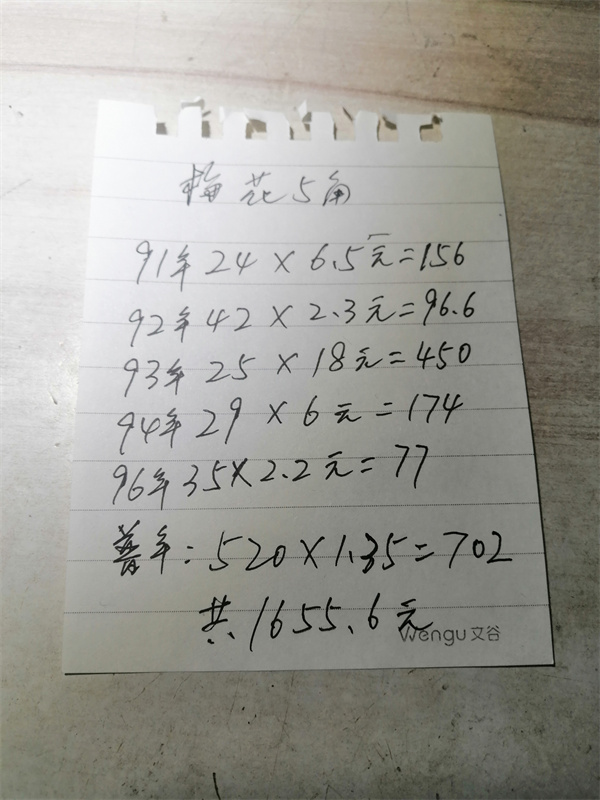 梅花5角
91年 24 × 6.5元=156
92年 42 × 2.3元=96.6
93年 25 × 18元=450
94年 29 × 6元=174
96年 35×2.2元=77
普年:520×1.35=702
共1655.6元
Wengu文谷